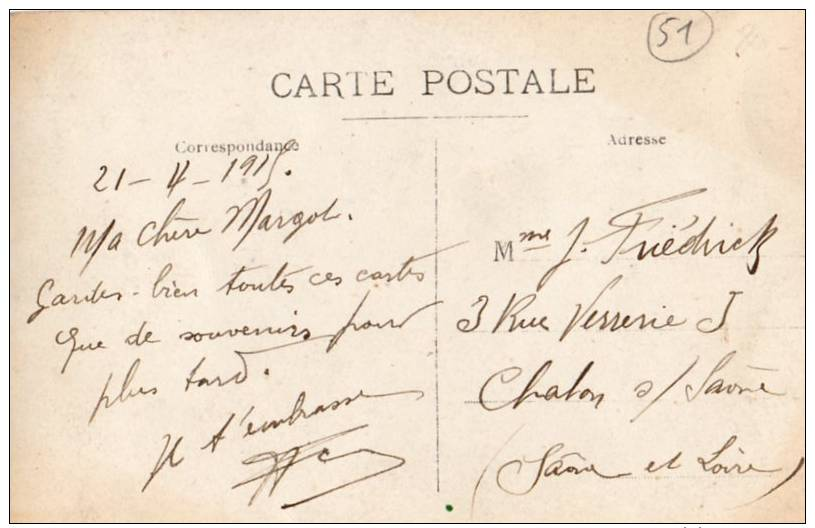 51
CARTE POSTALE
Correspondance
21-4-1915.
Ma chère Margot.
Gardes-bien toutes ces cartes
Que de souvenirs pour
plus tard.
Je t'embrasse
Adresse
Mme J. Friédrick
3 Rue Verrerie 3
Chalon s/ Saône
(Saône et Loire)